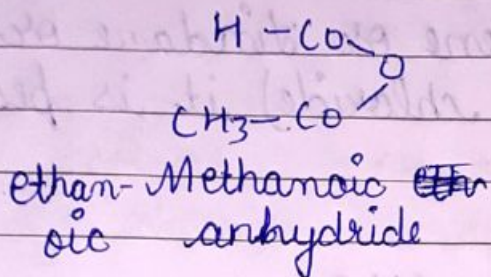 H - CO
O
CH3 - CO
ethan- Methanoic
oic anhydride